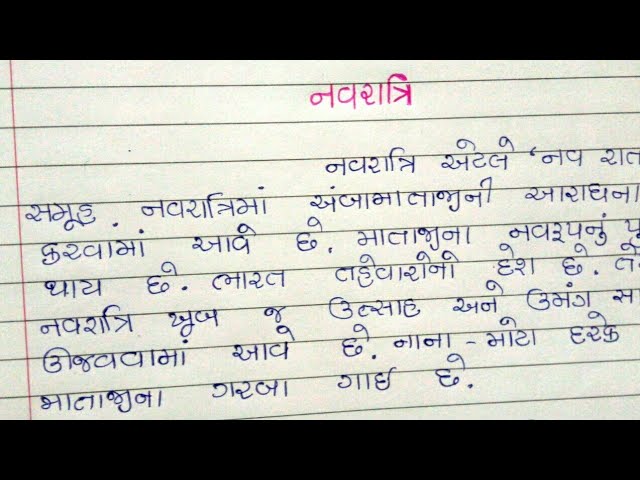 નવરાત્રિ
નવરાત્રિ એટલે 'નવ રાત
સમૂહ. નવરાત્રિમાં અંબામાતાજીની આરાધના
કરવામાં આવે છે. માતાજીના નવરૂપનું
થાય છે. ભારત તહેવારોનો દેશ છે.
નવરાત્રિ ખૂબ જ ઉત્સાહ અને ઉમંગ સા
ઊજવવામાં આવે છે. નાના - મોટા દરેક
માતાજીના ગરબા ગાઇ છે.